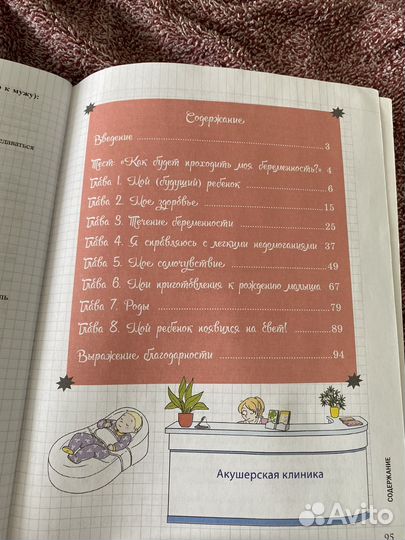 о к мужу):
едаваться
ль
Содержание
Введение 3
Тест: «Как будет проходить моя беременность?» 4
Глава 1. Мой (будущий) ребенок 6
Глава 2. Мое здоровье 15
Глава 3. Течение беременности 25
Глава 4. Я справляюсь с легкими недомоганиями 37
Глава 5. Мое самочувствие 49
Глава 6. Мои приготовления к рождению малыша 67
Глава 7. Роды 79
Глава 8. Мой ребенок появился на свет! 89
Выражение благодарности 94
Акушерская клиника
СОДЕРЖАНИЕ
95
Avito